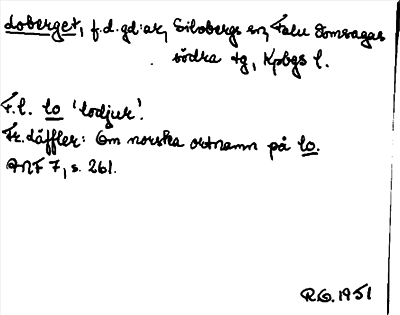 Loberget, f.d.gd:ar, Silvbergs sn, Falu Domsagas
södra tg, Kpbgs l.
F.l. lo 'lodjur'.
Fr. Läffler: Om norska ortnamn på lo.
ANF 7, s. 261.
R.G. 1951